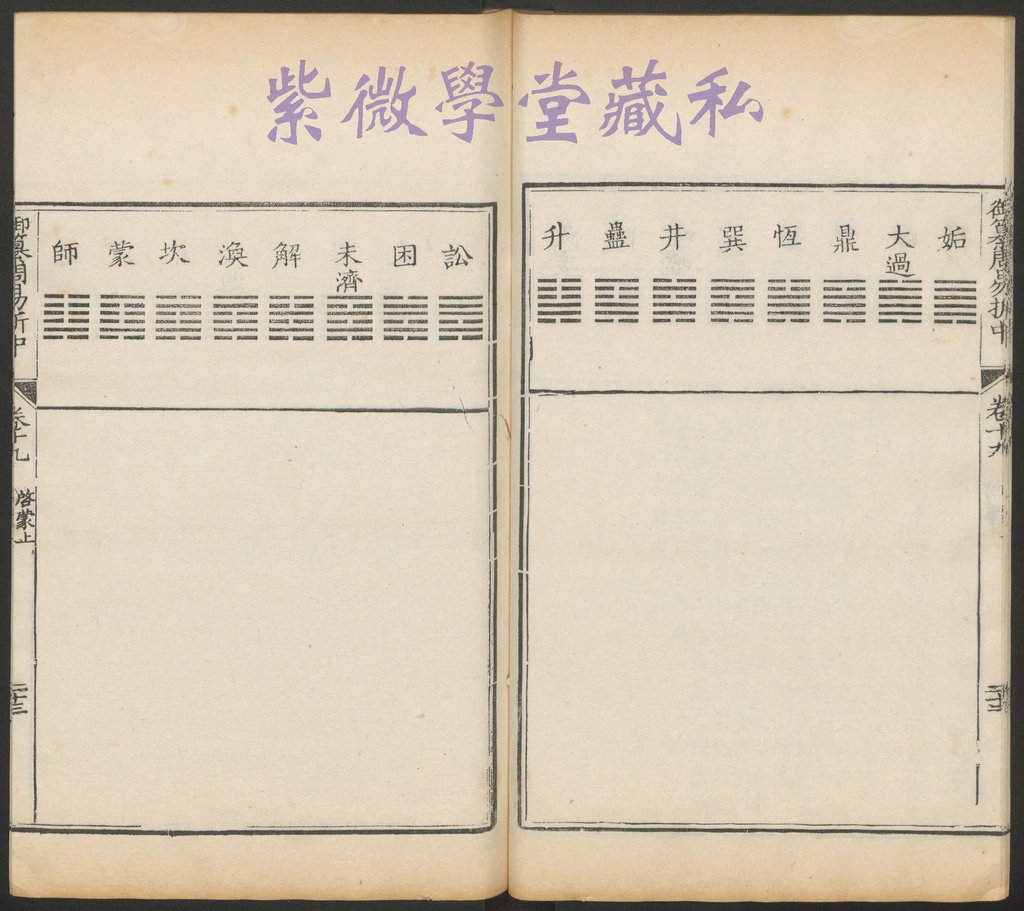 紫微學堂藏私
御纂周易折中
卷十九
姤
大過
鼎
恆
巽
井
蠱
升
訟
困
未濟
解
渙
坎
蒙
師
御纂周易折中
卷十九
啓蒙上
二十三